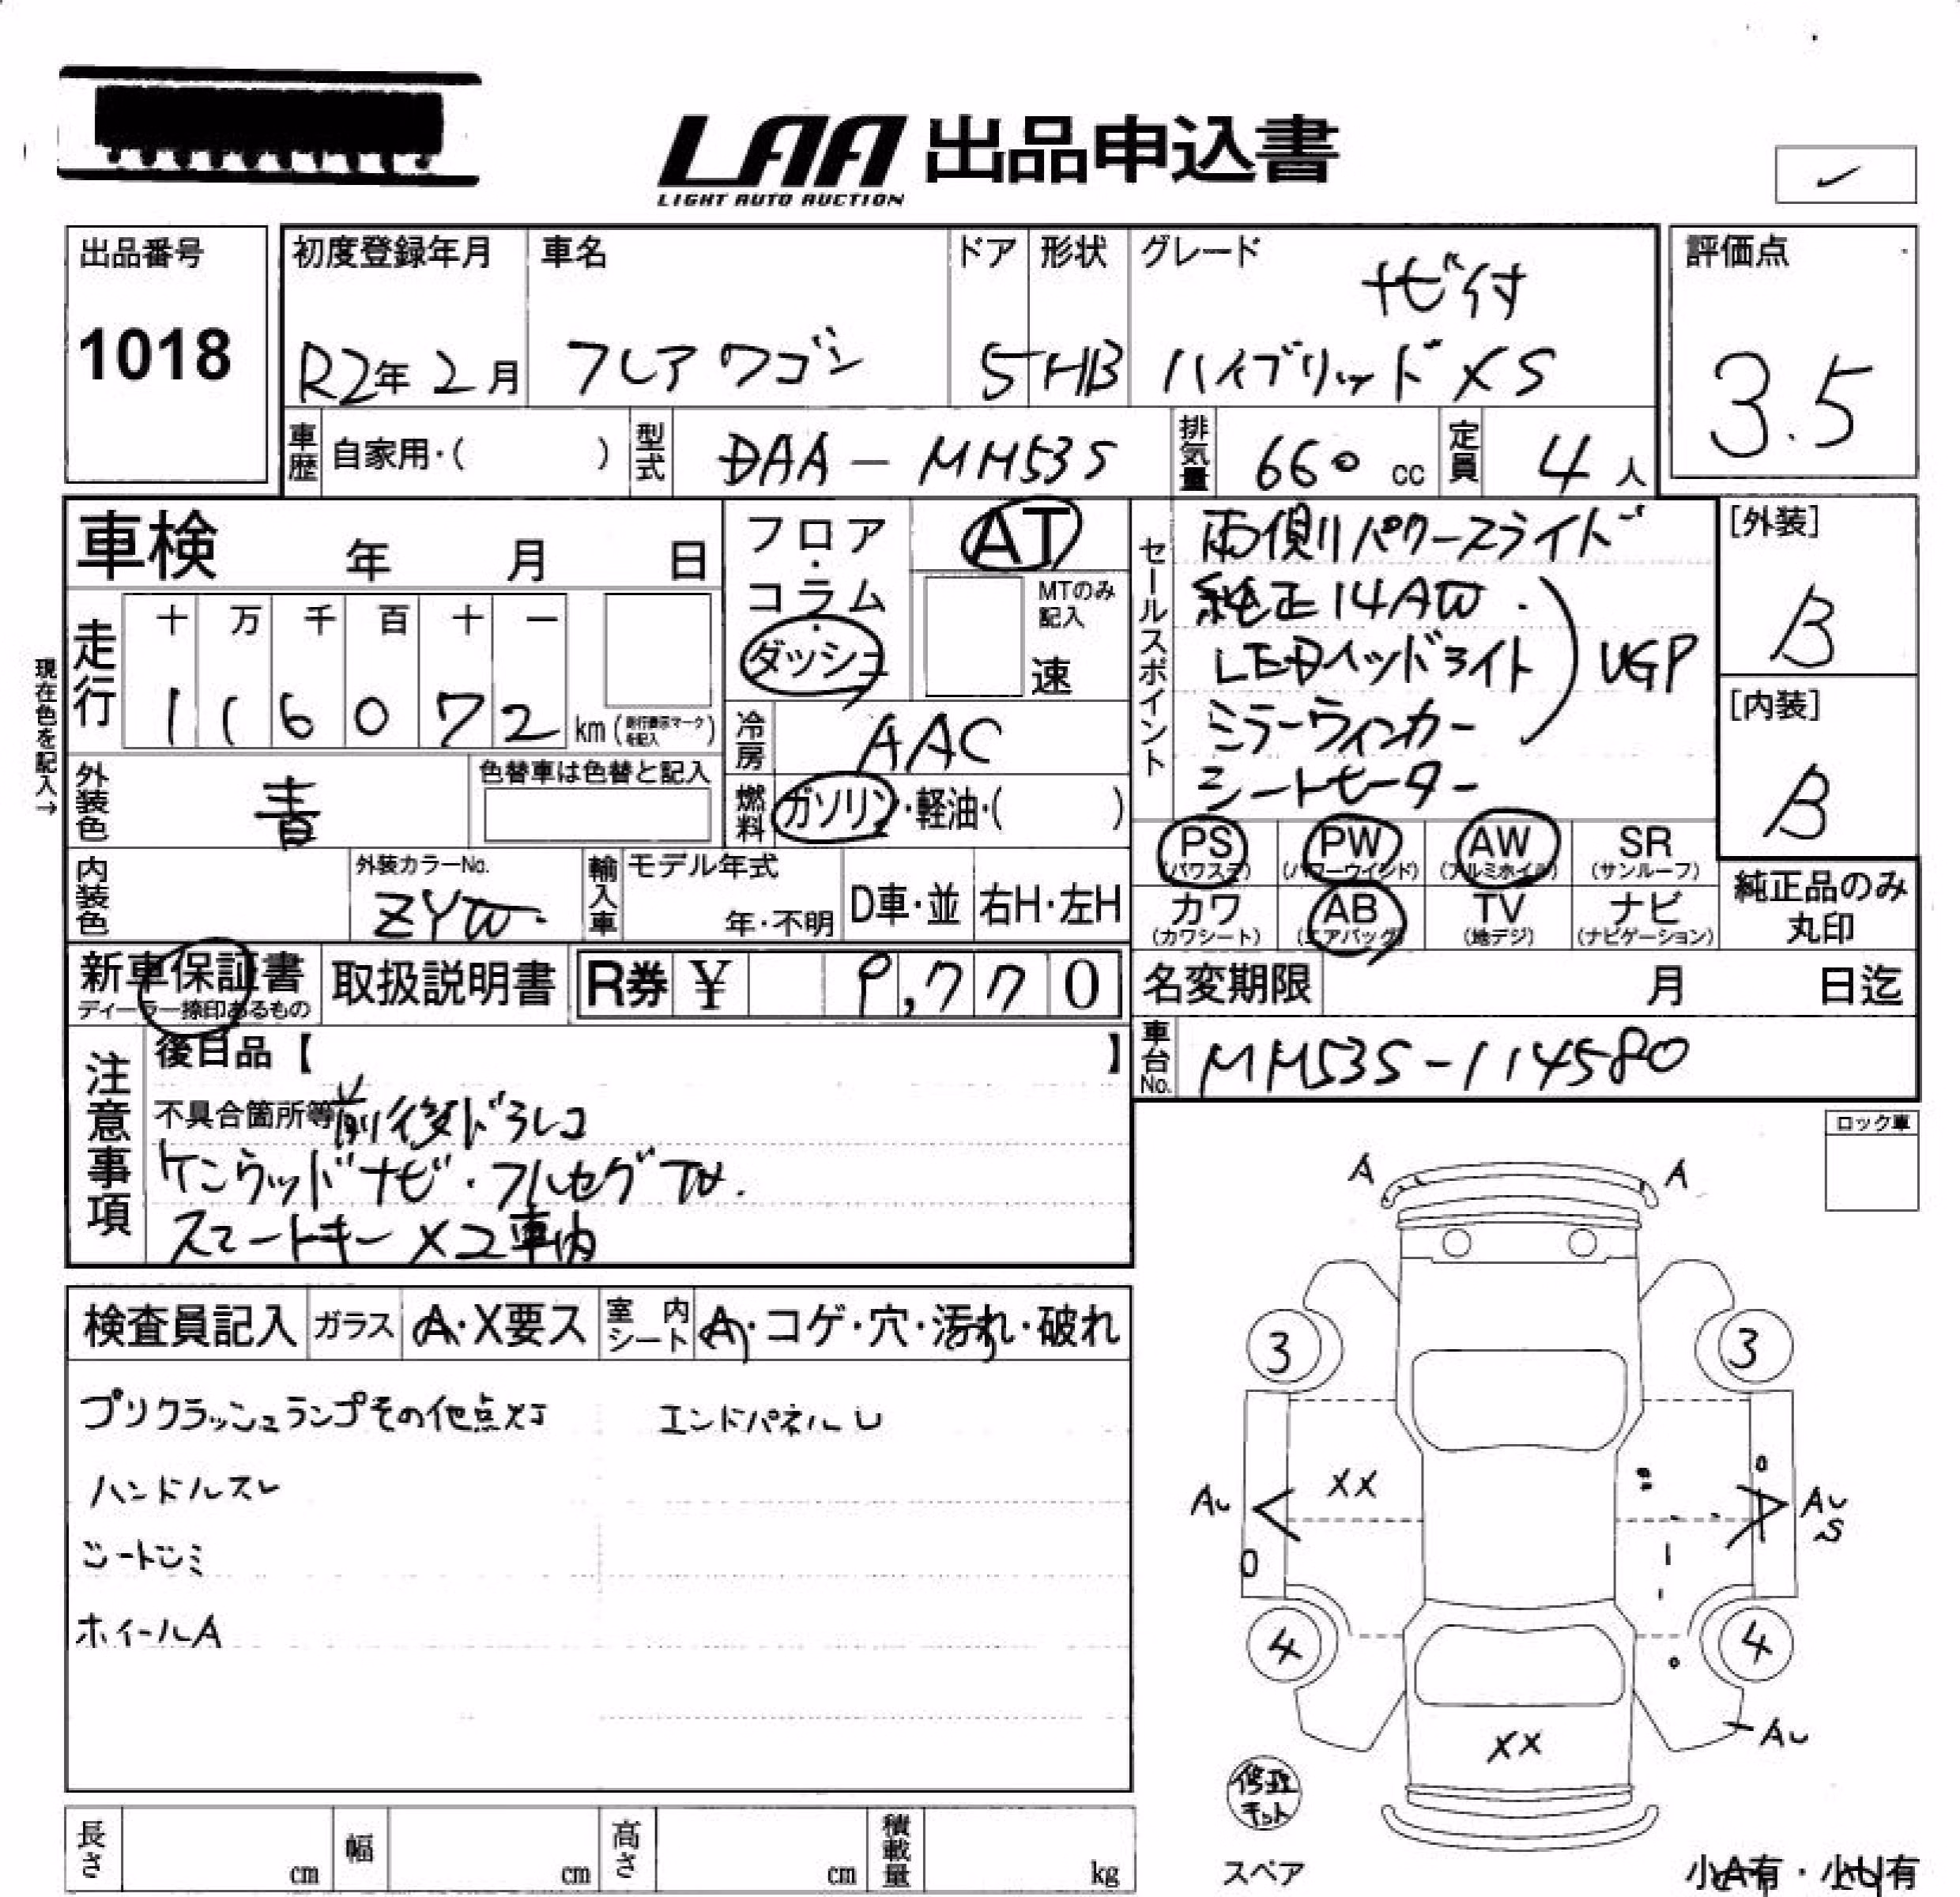 LAA 出品申込書
LIGHT AUTO AUCTION
✓
出品番号
1018
初度登録年月
R2年 2月
車名
フレアワゴン
ドア
5
形状
HB
グレード
ナビ付
ハイブリッドXS
評価点
3.5
車歴 自家用・( )
型式 DAA-MM53S
排気量 660 cc
定員 4人
車検 年 月 日
フロア・コラム・ダッシュ
AT
MTのみ記入
速
セールスポイント
両側パワースライド
純正14AW.
LEDヘッドライト
ミラーウィンカー
シートヒーター
UGP
[外装]
B
[内装]
B
現在色を記入→
走行
十 万 千 百 十 一
1 1 6 0 7 2 km (走行表示マークを記入)
冷房 AAC
外装色 青
色替車は色替と記入
燃料 ガソリン・軽油・( )
PS (パワステ)
PW (パワーウインド)
AW (アルミホイル)
SR (サンルーフ)
カワ (カワシート)
AB (エアバッグ)
TV (地デジ)
ナビ (ナビゲーション)
純正品のみ丸印
内装色
外装カラーNo.
ZYW
輸入車
モデル年式
年・不明
D車・並
右H・左H
新車保証書
ディーラー捺印あるもの
取扱説明書
R券 ¥ 9,770
名変期限 月 日迄
車台No. MM53S-114580
注意事項
後日品【 】
不具合箇所等 前後ドラレコ
ケンウッドナビ・フルセグTV.
スマートキー×2車内
ロック車
検査員記入
ガラス A・X要ス
室内シート A・コゲ・穴・汚れ・破れ
プリクラッシュランプその他点灯 エンドパネルU
ハンドルスレ
シートシミ
ホイールA
A A
3 3
XX
AU AU
S
4 4
AU
XX
修理キット
スペア
小A有・小U有
長さ cm
幅 cm
高さ cm
積載量 kg